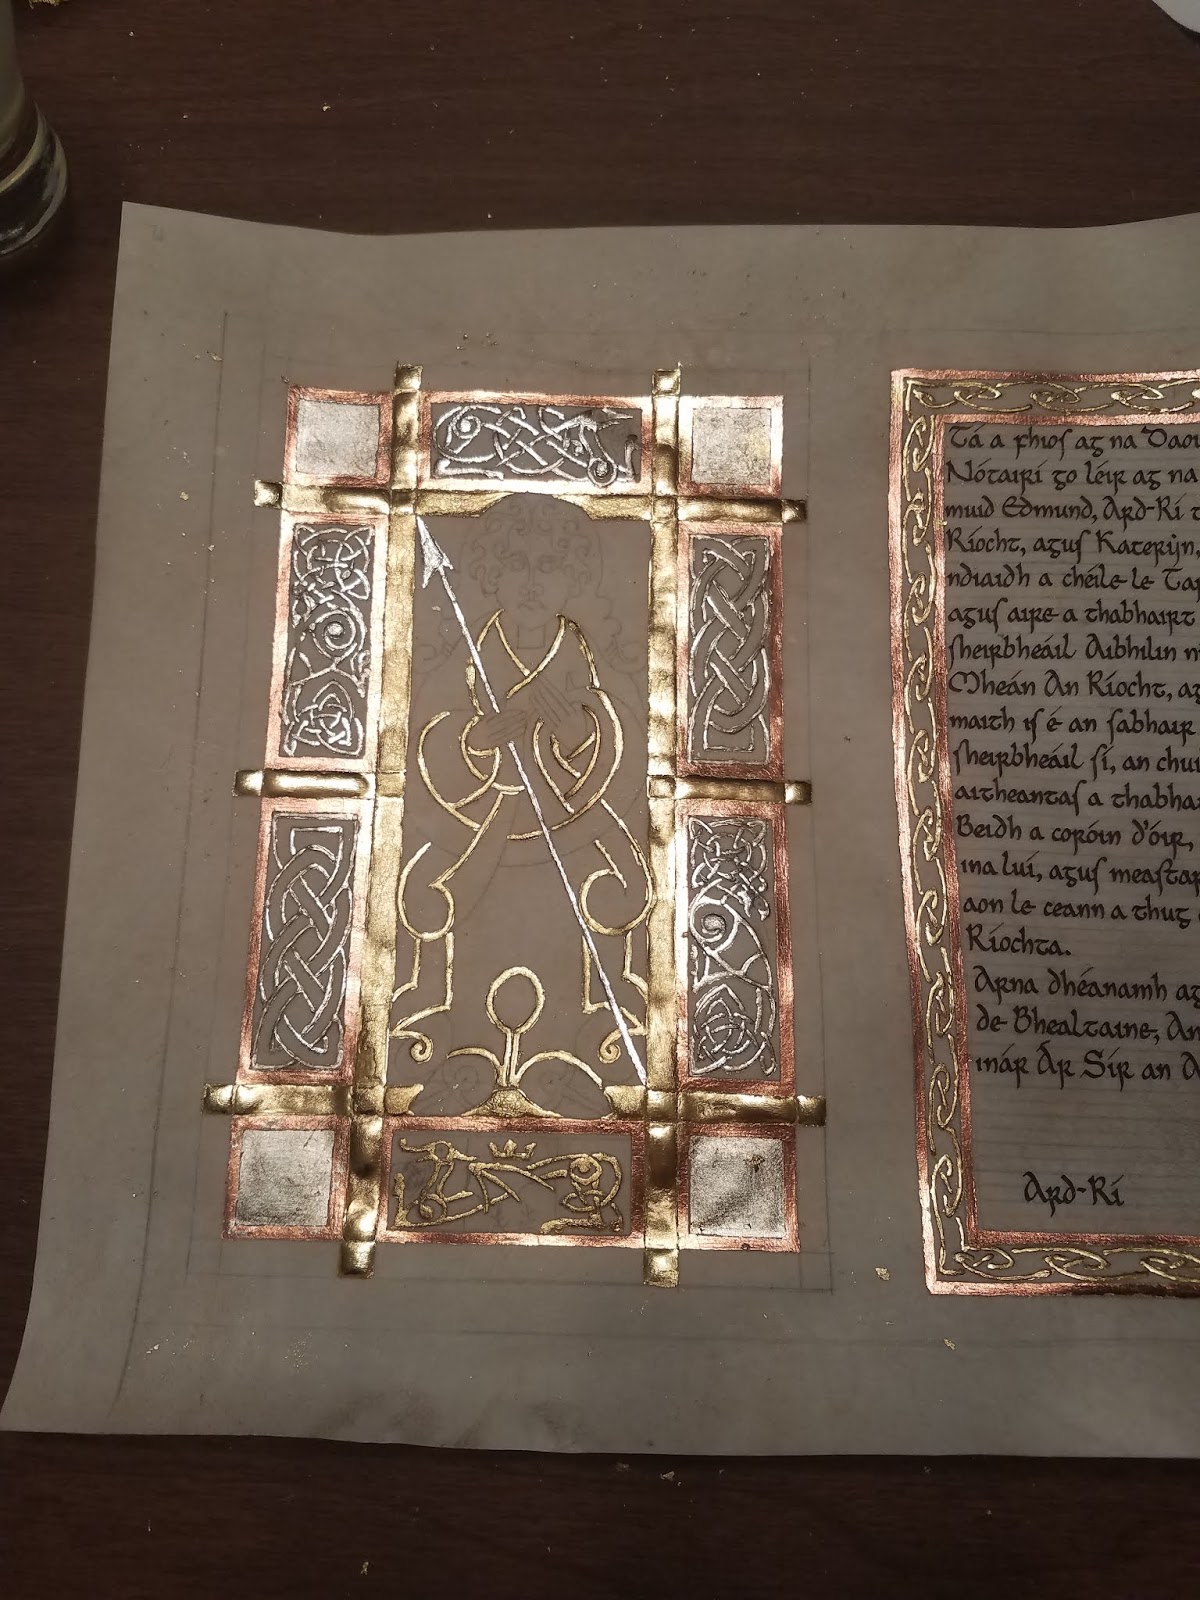 Tá a fhios ag na Daoi
Nótairí go léir ag na
muid Edmund, Ard-Rí t
Ríocht, agus Katerijn,
ndiaidh a chéile le Tar
agus aire a thabhairt
sheirbheáil Aibhilin n
Mheán An Ríocht, ag
maith is é an sabhair
sheirbheáil sí, an chui
aitheantas a thabhai
Beidh a coróin d'óir,
ina luí, agus meastar
aon le ceann a thug
Ríochta.
Arna dhéanamh ag
de Bhealtaine, An
inár Ár Sír an A
Ard-Rí